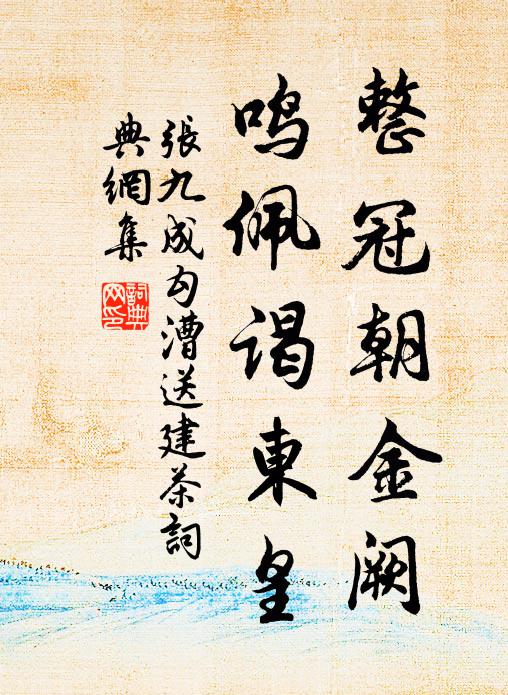 整冠朝金阙
鸣佩谒東皇
張九成勾漕送建茶詞
典網集
詞典
网印